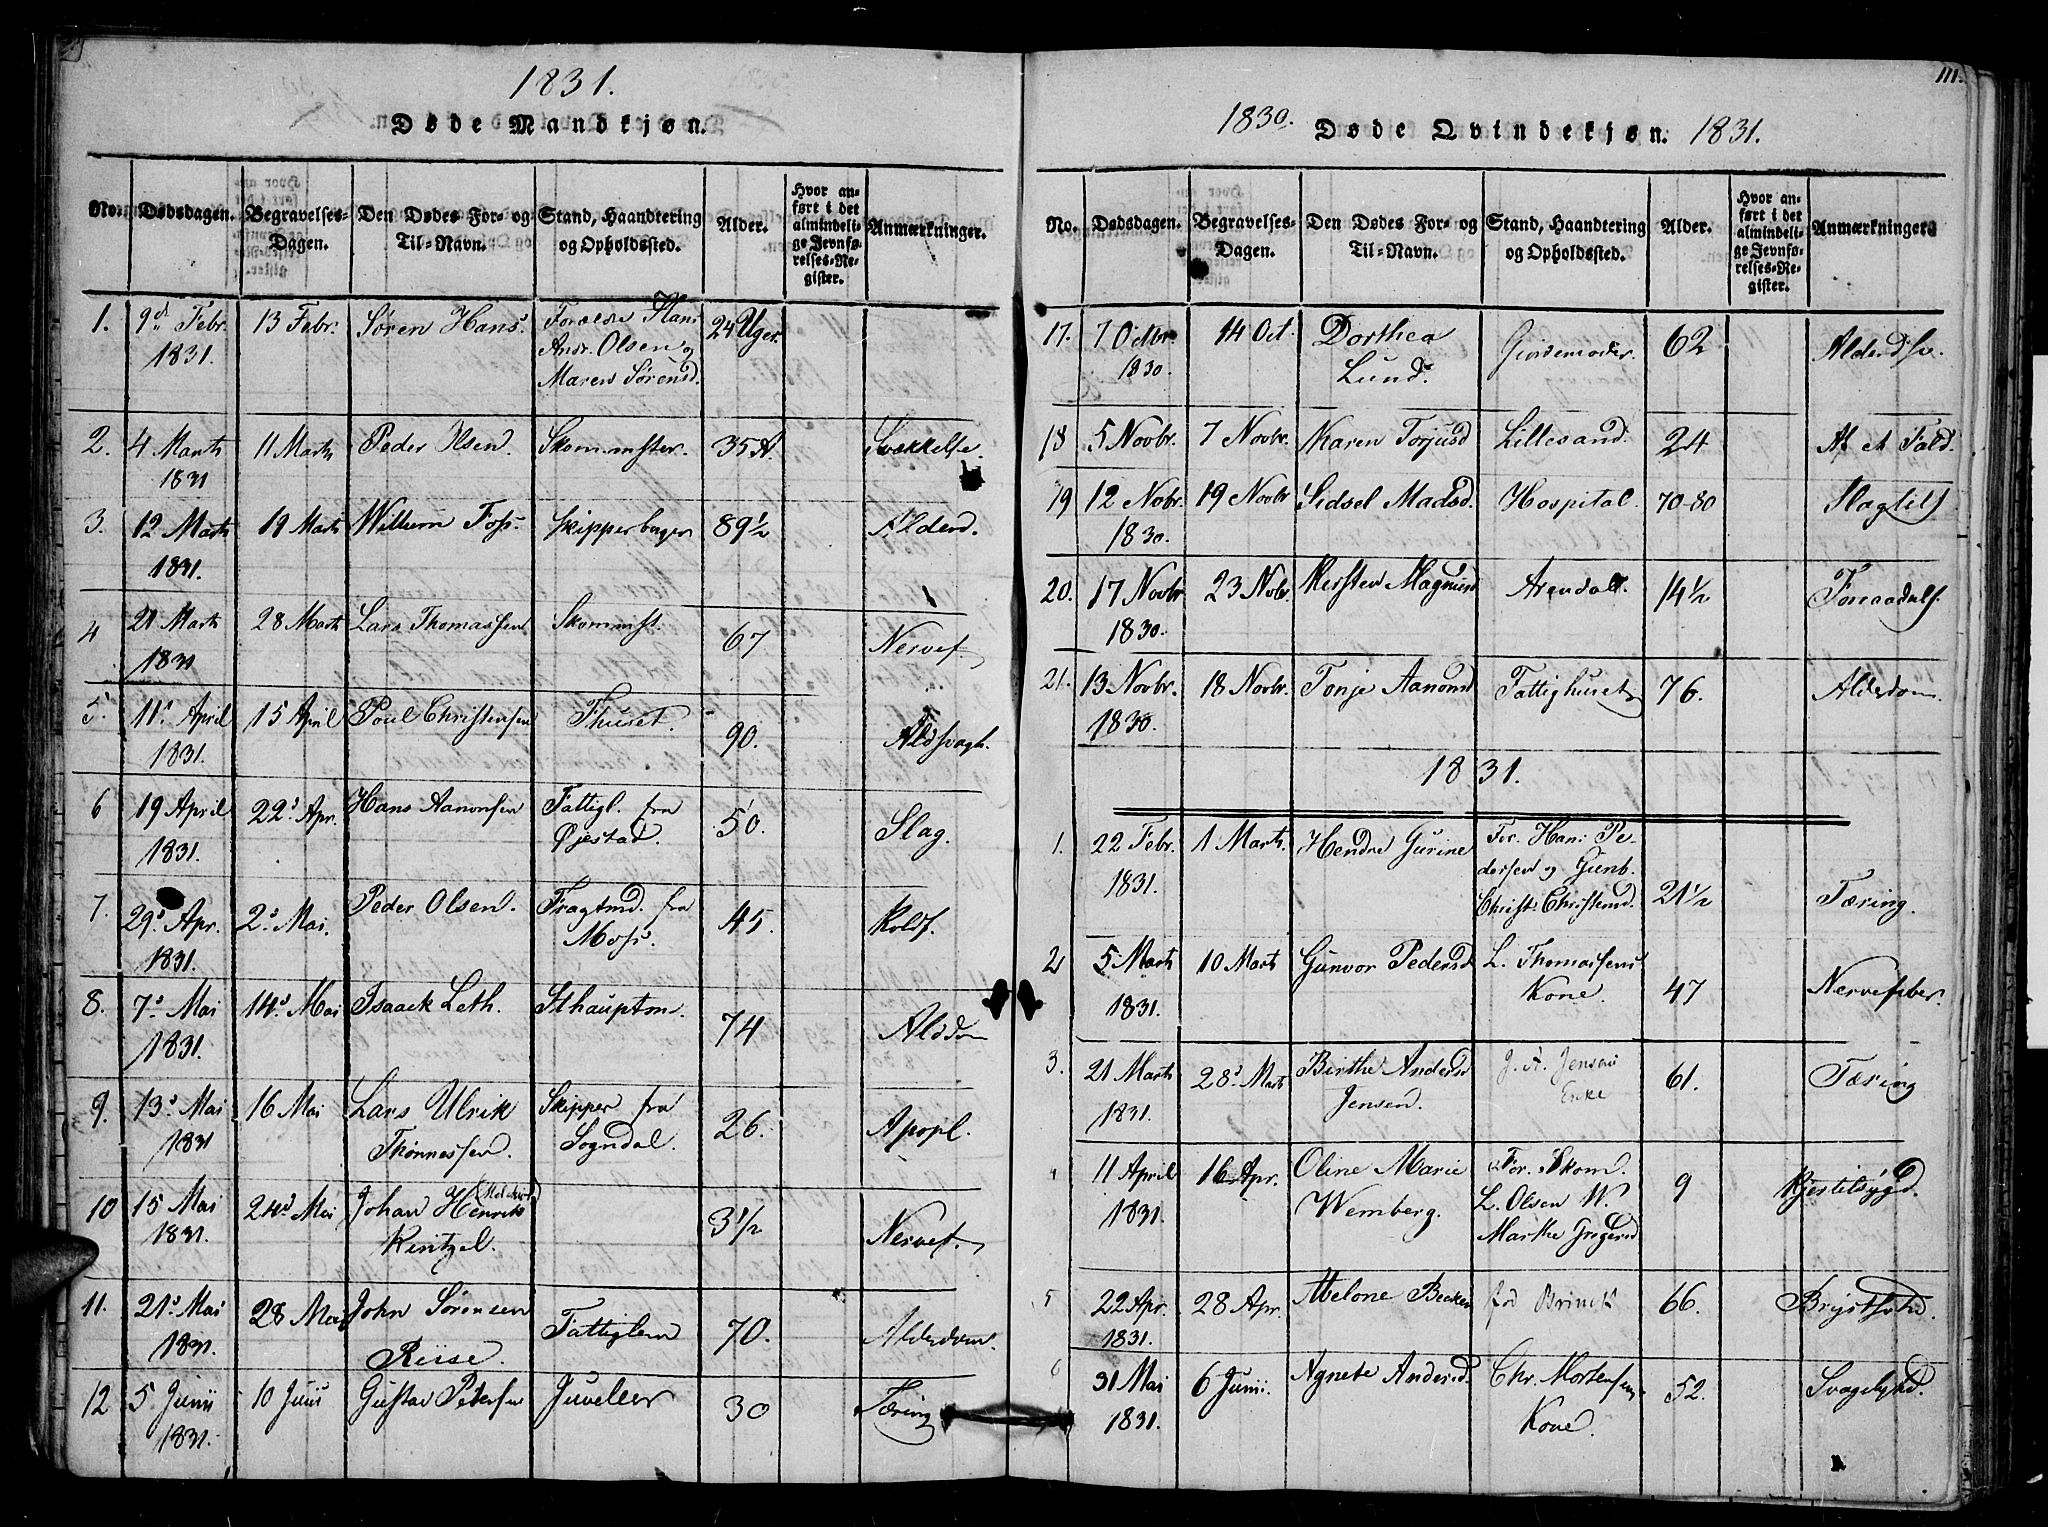 1831.
Døde Mandkjøn.
No. Dødsdagen. Begravelses-Dagen. Den Dødes For- og Til-Navn. Stand, Haandtering og Opholdssted. Alder. Hvor anført i det almindelige Jevnførelses-Register. Anmærkninger.
1. 9d Febr. 13 Febr. Søren Hans. Forældre Hans 24 Uger.
1831. Andr. Olsen og
Maren Sørensd.
2. 4 Marts 11 Marts Peder Olsen. Skommster. 35 A. Svækkelse.
1831
3. 12 Marts 19 Marts Wilhelm Foss. Skipperborger 89 1/2 Alderd.
1831.
4 21 Marts 28 Marts Lars Thomassen Skommst. 67 Nervef.
1831
5. 11s April 15 April Poul Christensen Fhuset. 90. Aldsvagh.
1831.
6 19 April 22s Apr. Hans Aanonsen Fattigl. fra 50. Slag.
1831. Øjestad.
7. 29s Apr. 2s Mai. Peder Olsen. Fragtmd. fra 45. Koldf.
1831. Moss.
8. 7s Mai 14s Mai Isaack Leth. Sthauptm. 74 Alddom
1831.
9. 13s Mai 16 Mai Lars Ulrik Skipper fra 26. Apopl.
1831 Thönnessen. Sogndal.
10 15 Mai 24s Mai Johan Henrik 3 1/2 Nervef.
1831. Kentzel.
11. 21s Mai 28 Mai John Sørensen Fattiglem 70. Alderdom.
1831. Riise.
12 5 Junii 10 Junii Gustav Petersen Juveleer 30 Tæring
1831.
111.
1830. Døde Qvindekjøn. 1831.
No. Dødsdagen. Begravelses-Dagen. Den Dødes For- og Til-Navn. Stand, Haandtering og Opholdssted. Alder. Hvor anført i det almindelige Jevnførelses-Register. Anmærkninger.
17. 7 Octbr. 14 Oct. Dorthea Giordemoder. 62
1830. Lund.
18 5 Novbr. 7 Novbr. Karen Torjusd Lillesand. 24 Af et Fald.
19 12 Nobr. 19 Novbr Sidsel Madsd. Hospital. 70-80
1830.
20. 17 Novbr 23 Nobr. Kersten Magnusd Arendal. 14 1/2
1830.
21. 13 Novbr. 18 Novbr. Tonje Aanonsd Fattighuset 76. Alderdom
1830.
1831.
1. 22 Febr. 1 Marts Hendne Gurine For. Hans Pe-
1831. dersen og Gunb. 21 1/2 Tæring.
Christ. Christensd.
2 5 Marts 10 Marts Gunvor Pedersd L. Thomassens 47 Nervefeber.
1831. Kone.
3. 21 Marts 28s Marts Birthe Andersd J. A. Jensens 61. Tæring
1831. Jensen. Enke
4 11 April 16 Apr. Oline Marie For. Skom. 9
1831. Wemberg. L. Olsen W.
Marthe Gregersd
5 22 Apr. 28 Apr. Melone Becker fød Brinck 66. Brystsvhed.
1831.
6 31 Mai 6 Junii. Agnete Andersd. Chr. Mortensens 52. Svagelighd.
1831. Kone.